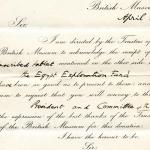 British Museum
April
Sir,
I am directed by the Trustees of
British Museum to acknowledge the receipt of
inscribed tablet mentioned in the other side
the Egypt Exploration Fund
have been so good as to present to them: and
to request that you will convey to the
President and Committee of the
the expression of the best thanks of the Trustees
of the British Museum for this donation.
I have the honour to be,
Sir,